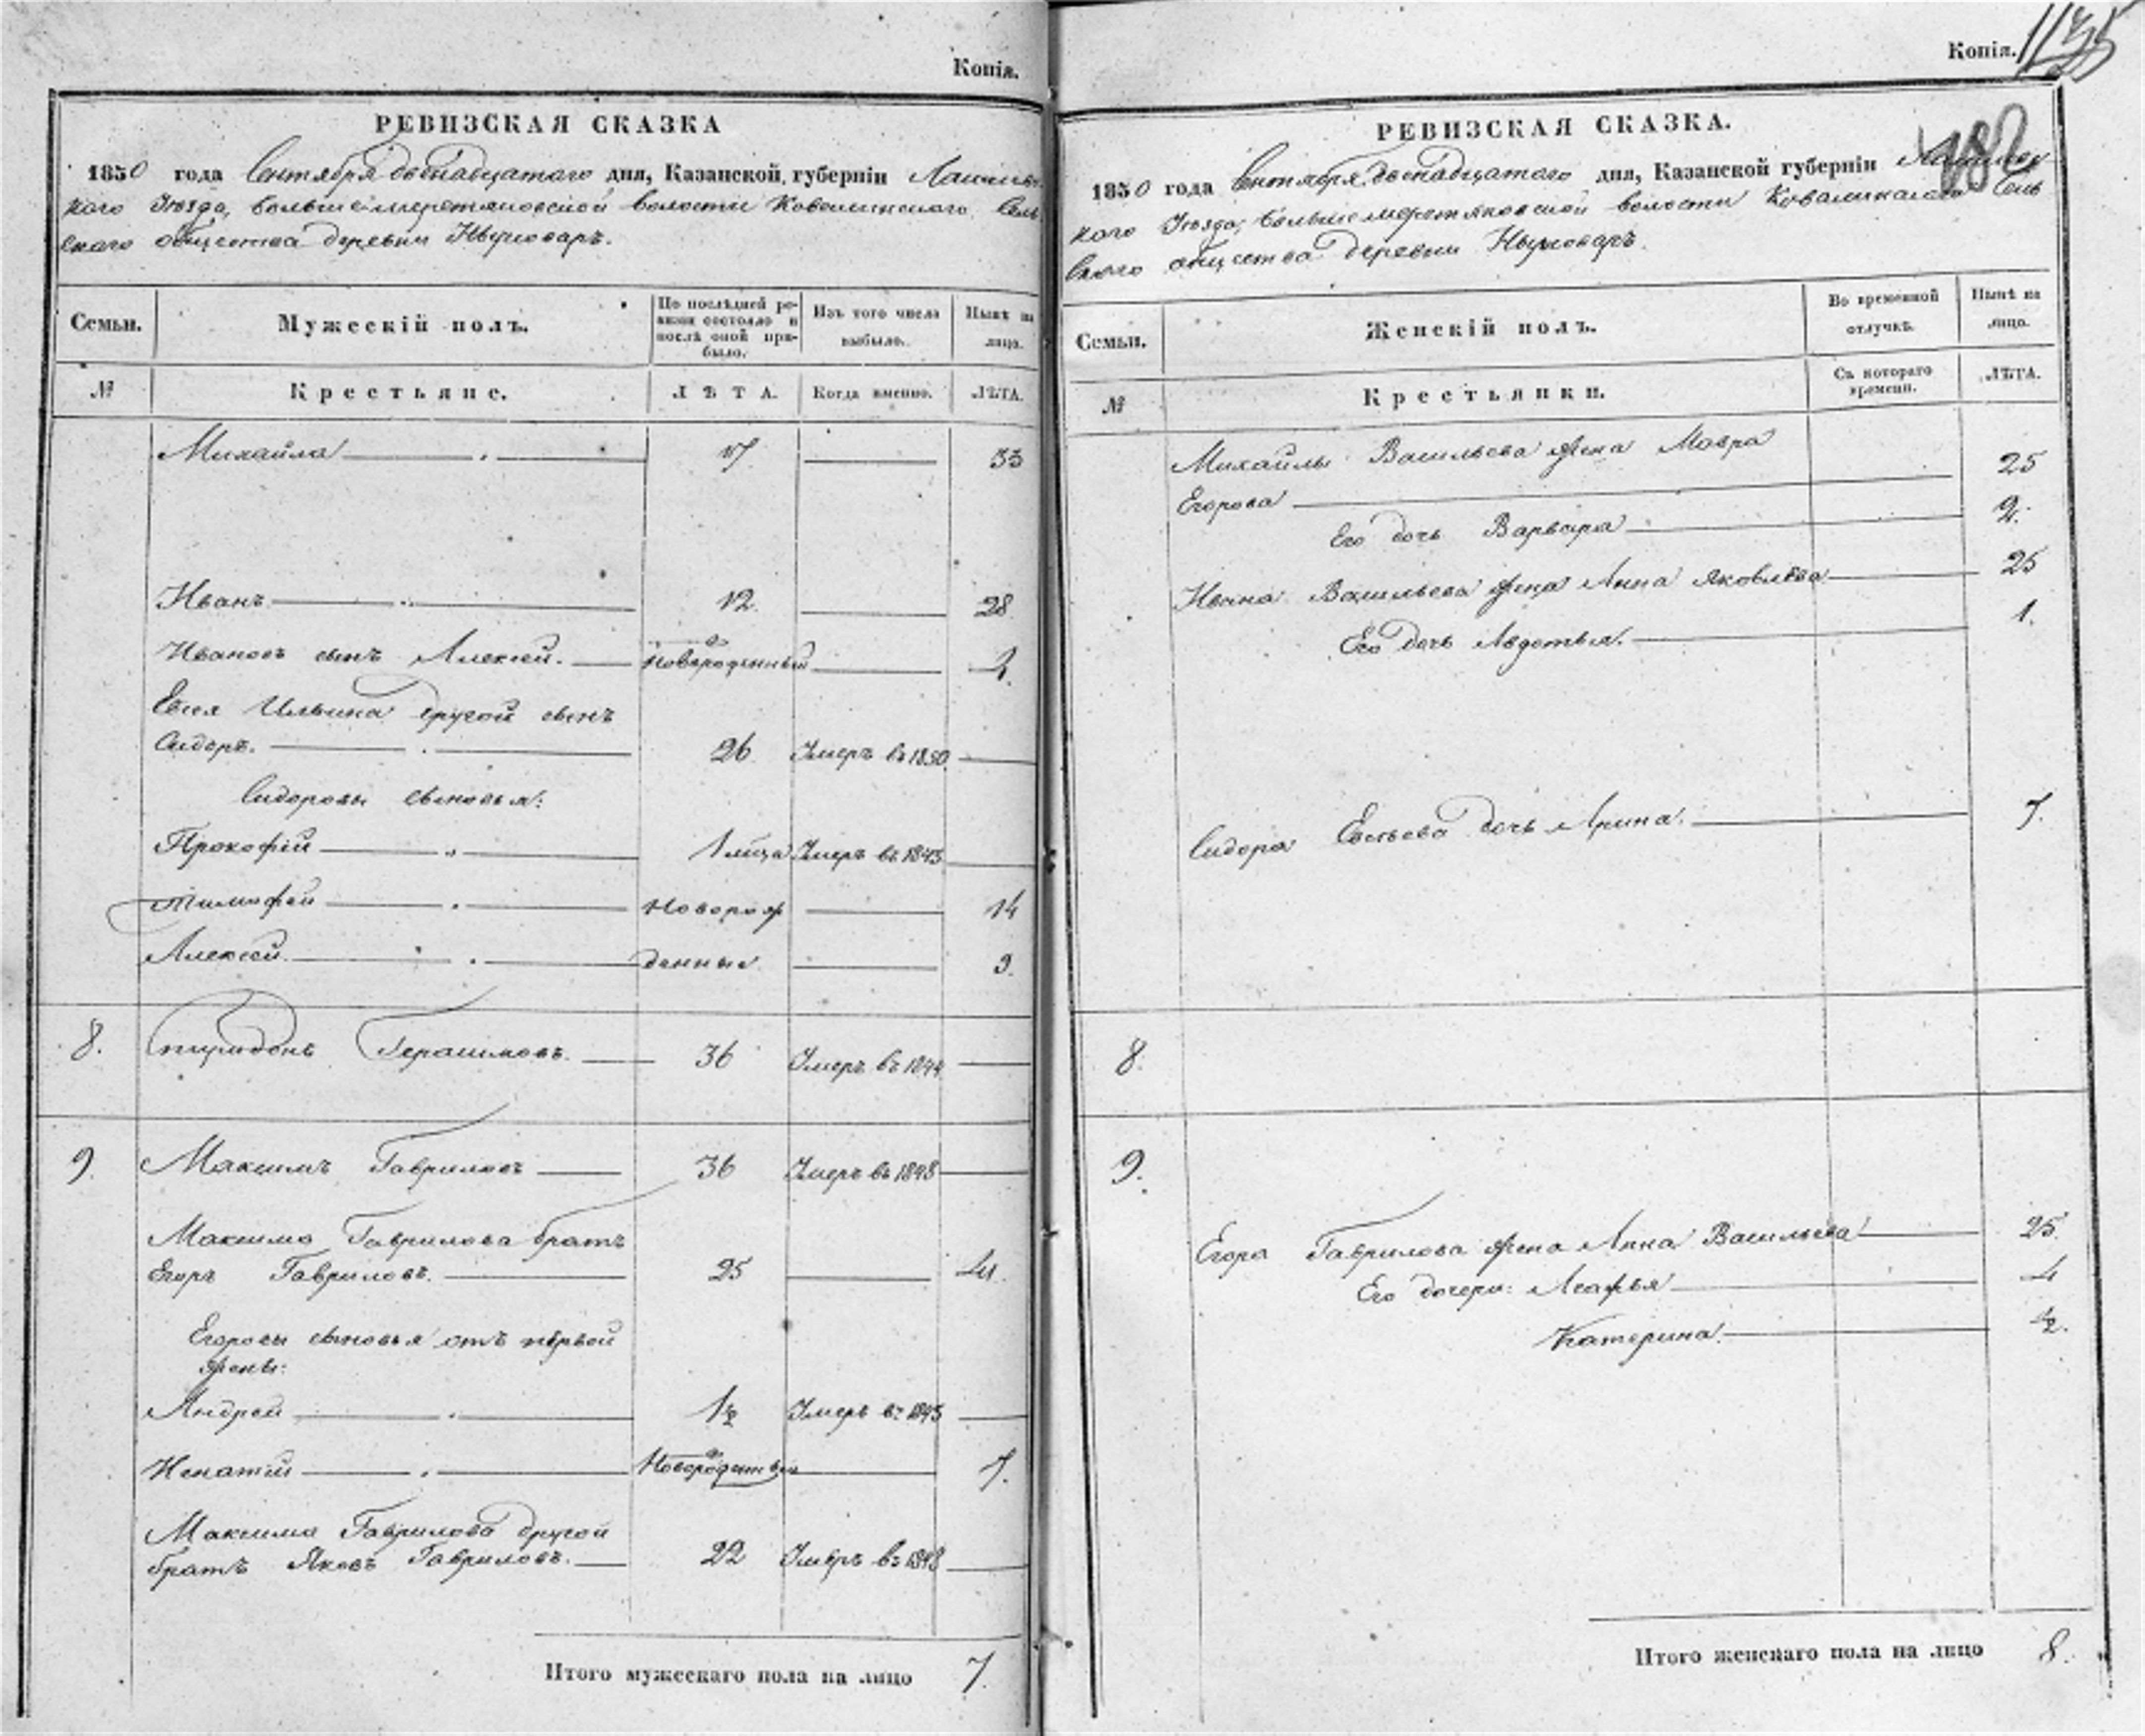 Копія.
РЕВИЗСКАЯ СКАЗКА
1850 года Сентября двенадцатаго дня, Казанской губерніи Лаишевс
каго Уѣзда, Большемеретяковской волости Ковалинскаго Сель
скаго общества деревни
Семьи. Мужескій полъ. По послѣдней ре- Изъ того числа Нынѣ на
визіи состояло и выбыло. лицо.
послѣ оной при-
было.
№ Крестьяне. ЛѢТА. Когда именно. ЛѢТА.
Михайла 17 33
Иванъ 12. 28
Ивановъ сынъ Алексей. новорожденный
Евсея Ильина другой сынъ
Сидоръ. 26 Умеръ въ 1850
Сидоровы сыновья:
Прокофій Умеръ въ 1843
Тимофей новорож 14
Алексей денные 9.
8. Спиридонъ Герасимовъ. 36 Умеръ въ 1844
9. Максимъ Гавриловъ 36 Умеръ въ 1848
Максима Гаврилова братъ
Егоръ Гавриловъ. 25 41.
Егоровы сыновья отъ первой
жены:
Андрей 1½ Умеръ въ 1843
Игнатій Новорожденный 7.
Максима Гаврилова другой
братъ Яковъ Гавриловъ. 22 Умеръ въ 1848
Итого мужескаго пола на лицо 7.
Копія.
РЕВИЗСКАЯ СКАЗКА.
1850 года Сентября двенадцатаго дня, Казанской губерніи Лаишевс
каго Уѣзда, Большемеретяковской волости Ковалинскаго Сель
скаго общества деревни
Семьи. Женскій полъ. Во временной Нынѣ на
отлучкѣ. лицо.
№ Крестьянки. Съ котораго ЛѢТА.
времени.
Михайлы Васильева жена Мавра
Егорова 25
Его дочь Варвара 2.
Ивана Васильева жена Анна Яковлева 25
Его дочь Авдотья. 1.
Сидора Евсеева дочь Арина. 7.
8.
9.
Егора Гаврилова жена Анна Васильева 25.
Его дочери: Агафья 4
Катерина. ½.
Итого женскаго пола на лицо 8.